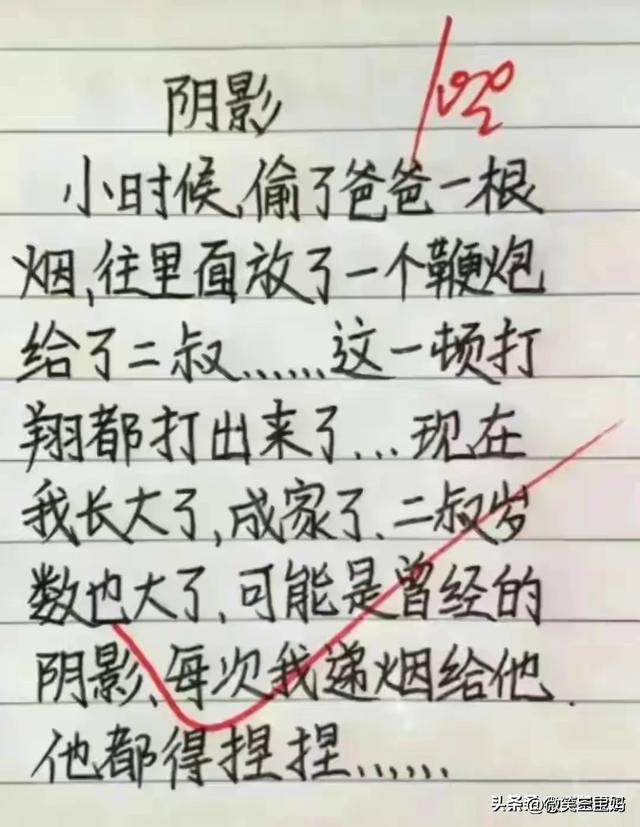 阴影
小时候,偷了爸爸一根
烟,往里面放了一个鞭炮
给了二叔......这一顿打
翔都打出来了...现在
我长大了,成家了、二叔岁
数也大了,可能是曾经的
阴影、每次我递烟给他.
他都得捏捏......
头条@微笑室宝妈